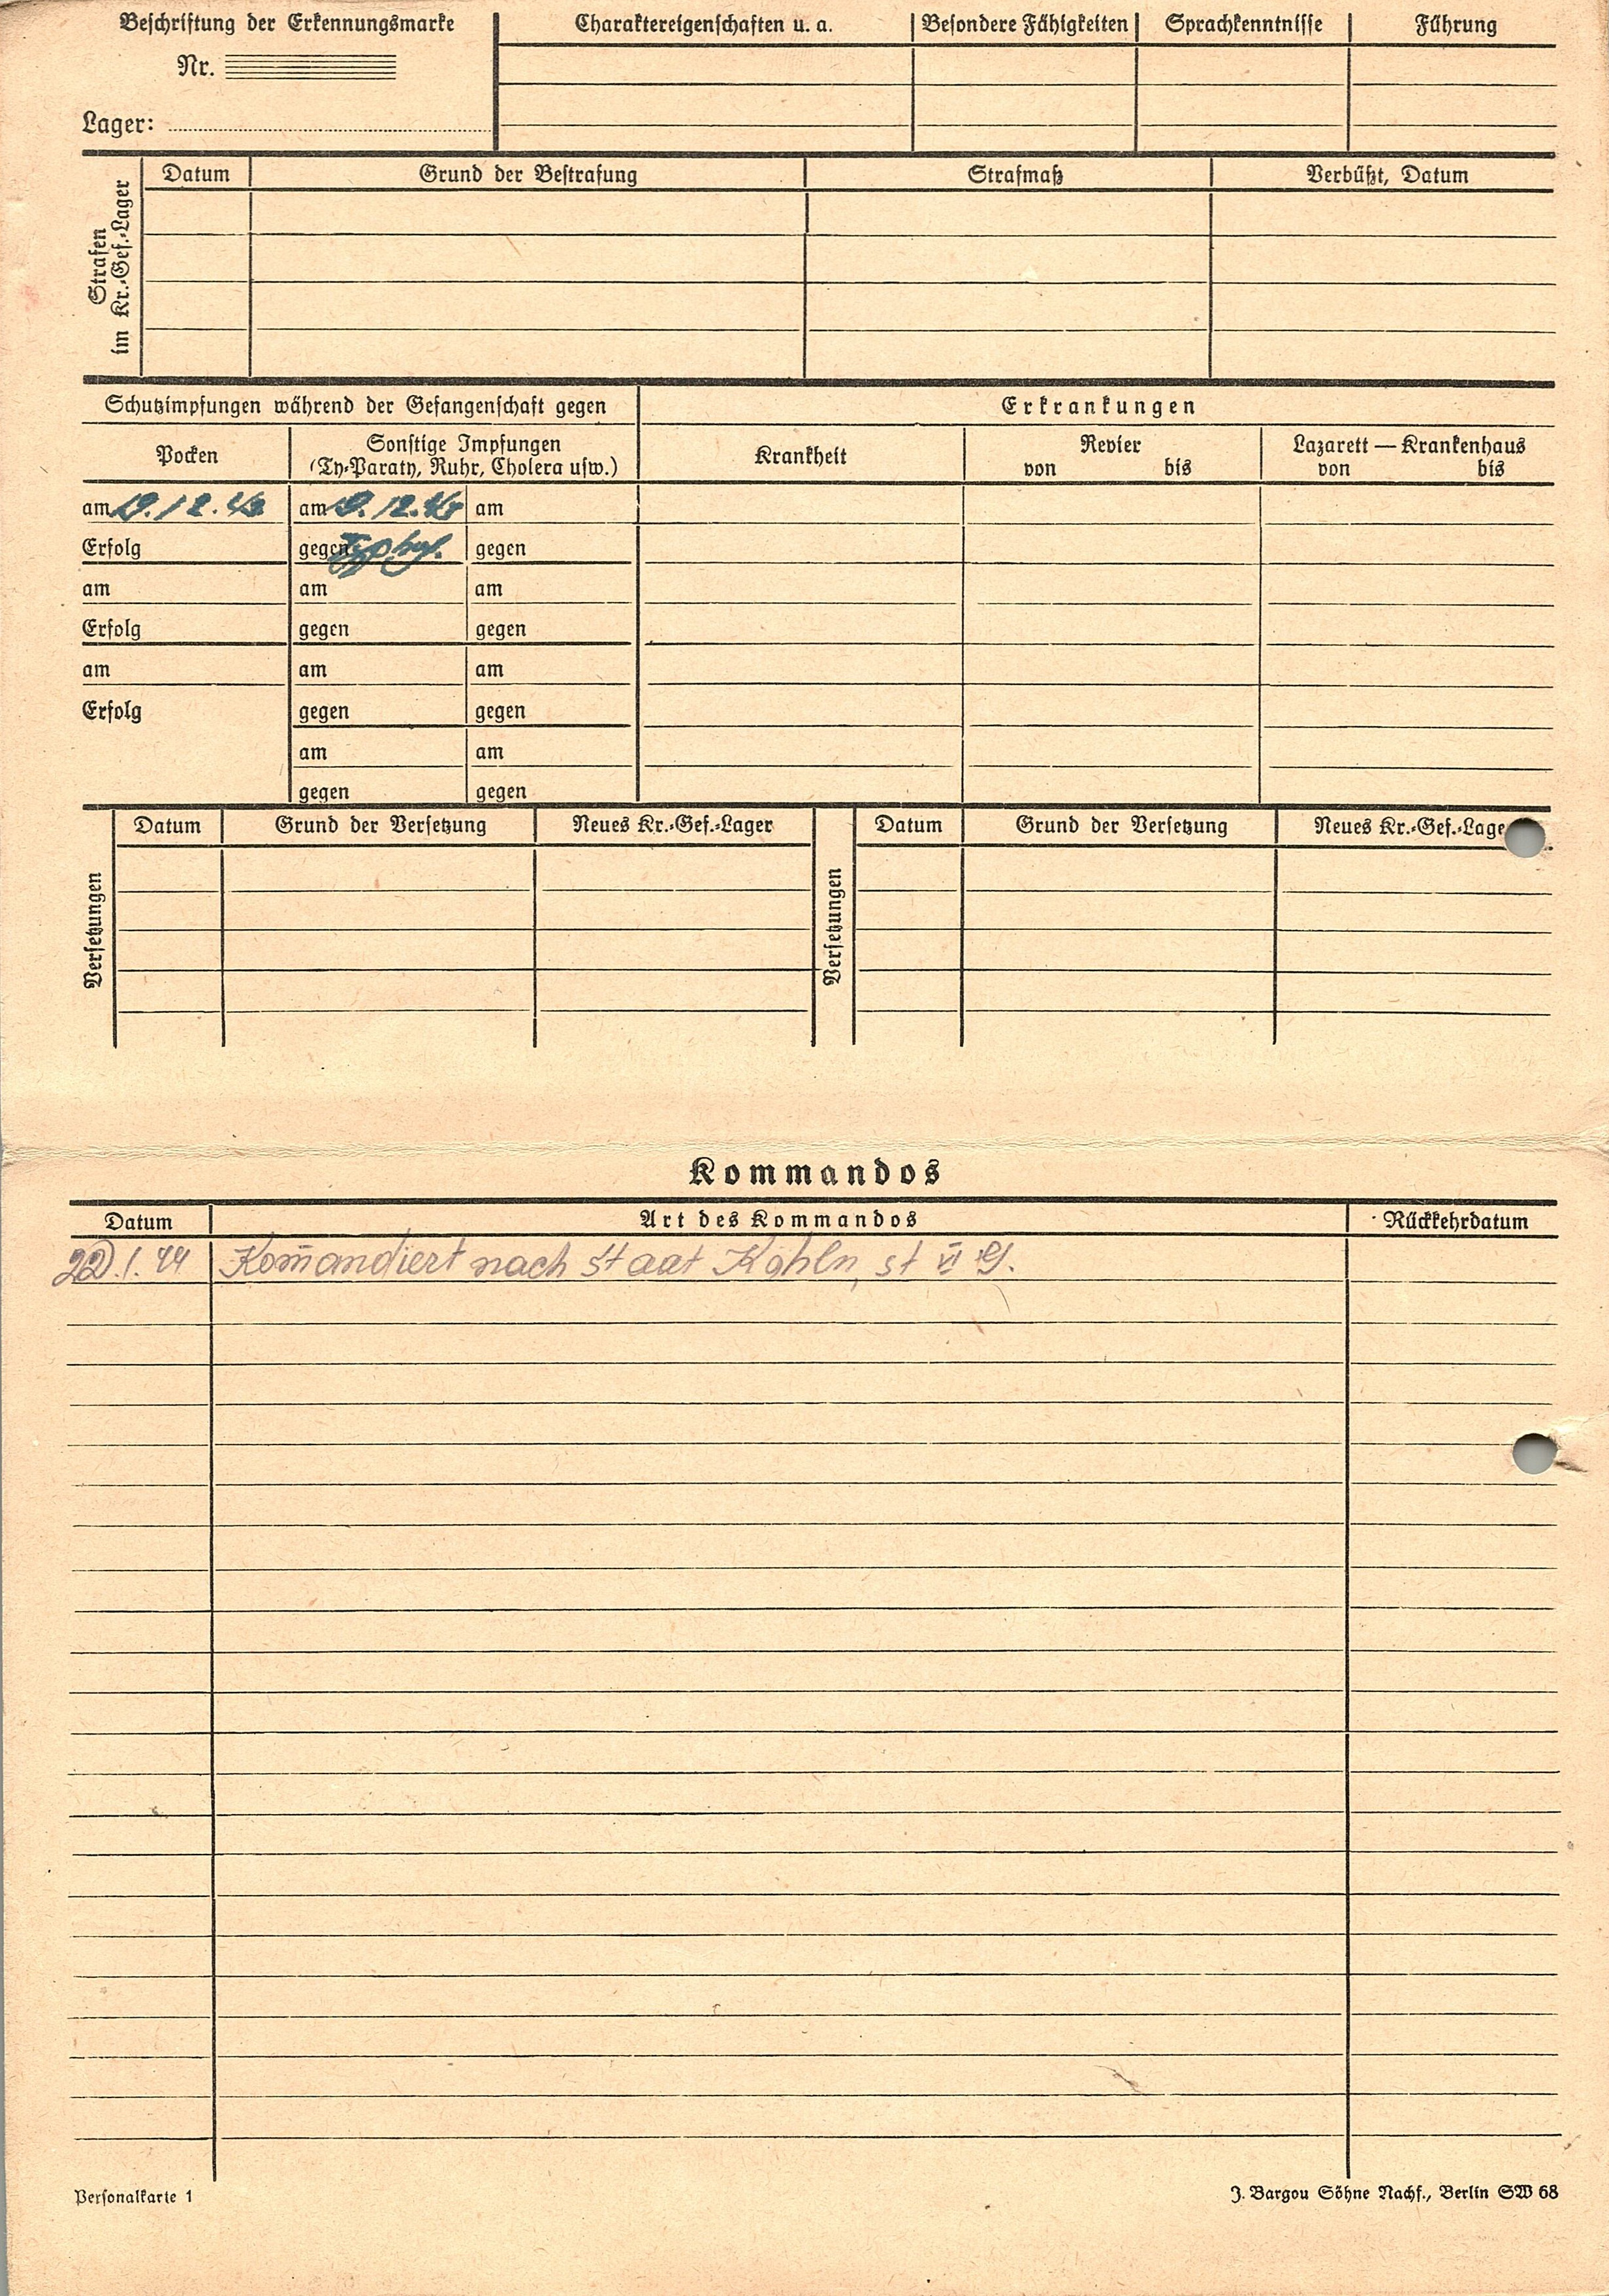 Beschriftung der Erkennungsmarke
Nr.
Lager:
Charaktereigenschaften u. a. Besondere Fähigkeiten Sprachkenntnisse Führung
Strafen
im Kr.-Gef.-Lager
Datum Grund der Bestrafung Strafmaß Verbüßt, Datum
Schutzimpfungen während der Gefangenschaft gegen Erkrankungen
Pocken
Sonstige Impfungen
(Ty-Paraty, Ruhr, Cholera usw.)
Krankheit
Revier
von bis
Lazarett — Krankenhaus
von bis
am .12.43 am .12.43 am
Erfolg gegen gegen
am am am
Erfolg gegen gegen
am am am
Erfolg gegen gegen
am am
gegen gegen
Versetzungen
Datum Grund der Versetzung Neues Kr.-Gef.-Lager
Versetzungen
Datum Grund der Versetzung Neues Kr.-Gef.-Lage
Kommandos
Datum Art des Kommandos Rückkehrdatum
22.1.44 Kom̄andiert nach staat Kohln, st VI G.
Personalkarte 1
J. Bargou Söhne Nachf., Berlin SW 68